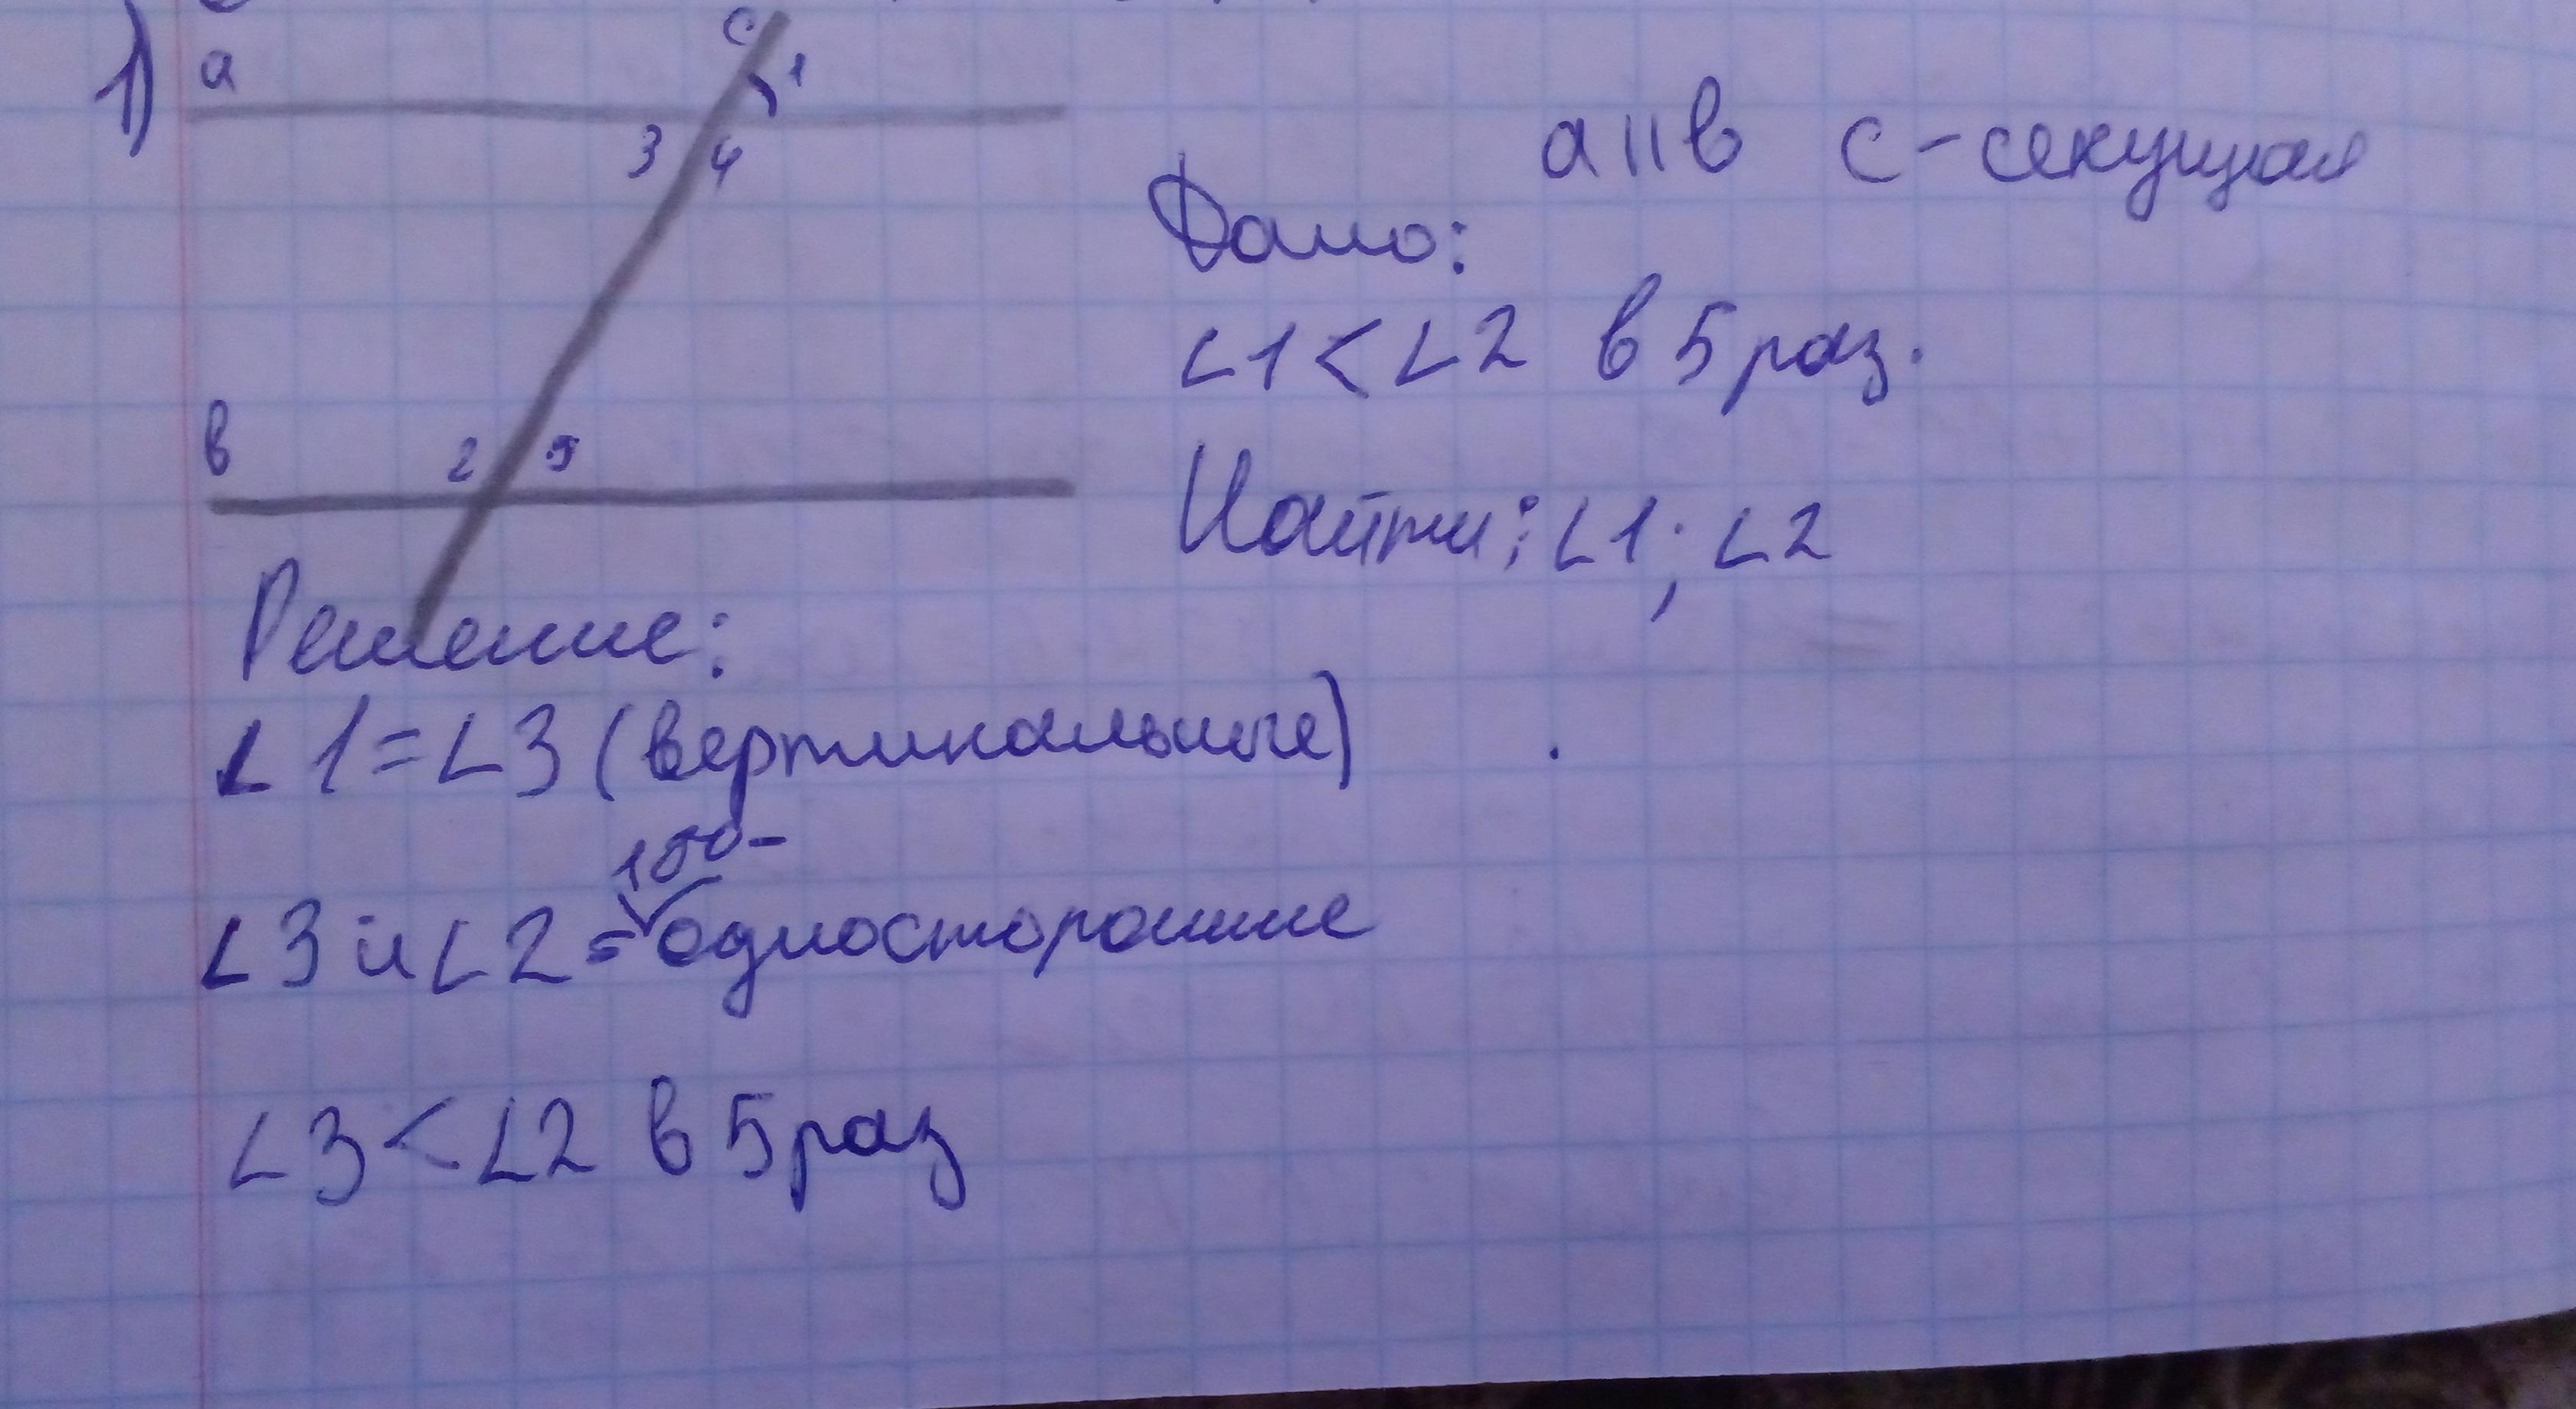 1)
a
c
1
3 4
a || b c - секущая
Дано:
∠1 < ∠2 в 5 раз.
в
2 5
Найти: ∠1; ∠2
Решение:
∠1 = ∠3 (вертикальные)
180 -
∠3 и ∠2 = односторонние
∠3 < ∠2 в 5 раз